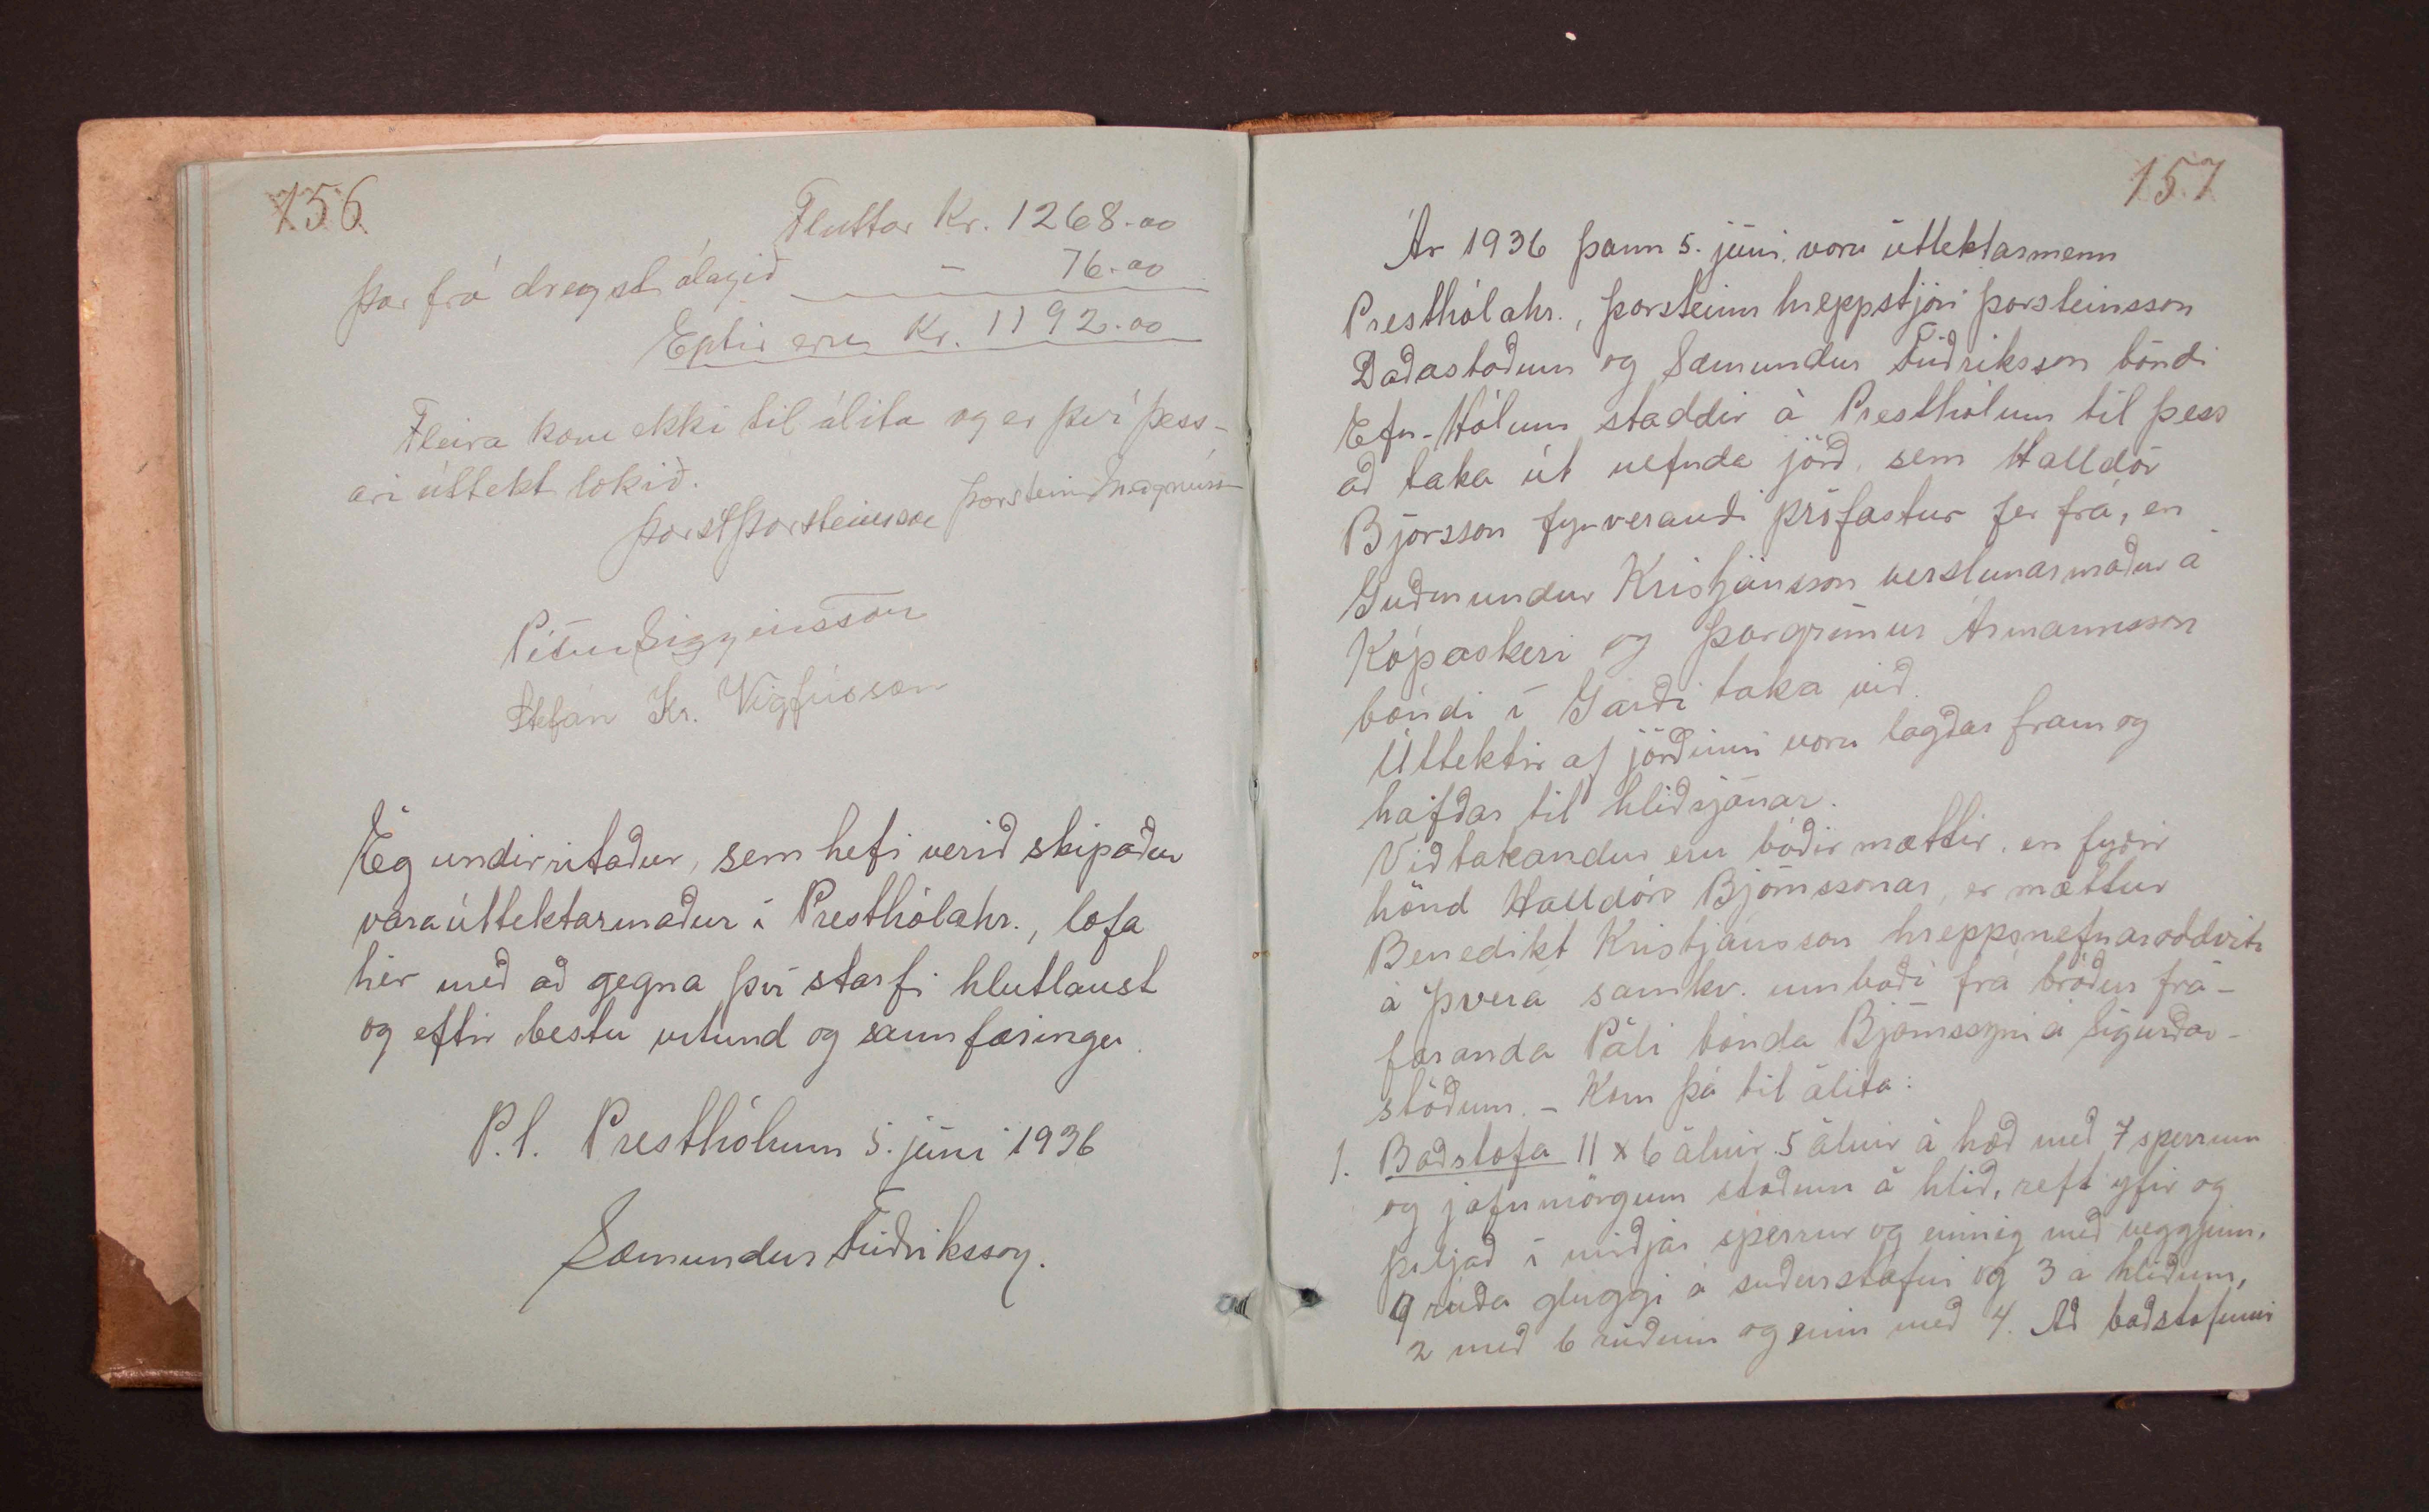 156
Fluttar Kr. 1268.00
Þar frá dregst álagið — 76.00
Eptir eru Kr. 1192.00
Fleira kom ekki til álita og er því þess-
ari úttekt lokið.
Þorst Þorsteinsson Þorsteinn Magnúss
Pétur Siggeirsson
Stefán Kr. Vigfússon
Ég undirritaður, sem hefi verið skipaður
varaúttektarmaður í Presthólahr., lofa
hér með að gegna því starfi hlutlaust
og eftir bestu vitund og sannfæringu.
P.t. Presthólum 5. júní 1936
Sæmundur Friðriksson.
157
Ár 1936 þann 5. júní, voru úttektarmenn
Presthólahr., Þorsteinn hreppstjóri Þorsteinsson
Daðastöðum og Sæmundur Friðriksson bóndi
Efri-Hólum staddir á Presthólum til þess
að taka út nefnda jörð, sem Halldór
Björsson fyrverandi prófastur fer frá, en
Guðmundur Kristjánsson verslunarmaður á
Kópaskeri og Þorgrímur Ármannsson
bóndi í Garði taka við.
Úttektir af jörðinni voru lagðar fram og
hafðar til hliðsjónar.
Viðtakendur eru báðir mættir, en fyrir
hönd Halldórs Björnssonar, er mættur
Benedikt Kristjánsson hreppsnefnaroddviti
á Þverá samkv. umboði frá bróður frá-
faranda Páli bónda Björnssyni á Sigurðar-
stöðum. - Kom þá til álita:
1. Baðstofa 11 x 6 álnir. 5 álnir á hæð með 7 sperrum
og jafnmörgum stoðum á hlið, reft yfir og
þiljað í miðjar sperrur og einnig með veggjum.
9 rúða gluggi á suðurstafni og 3 á hliðum,
2 með 6 rúðum og einn með 4. Að baðstofunni